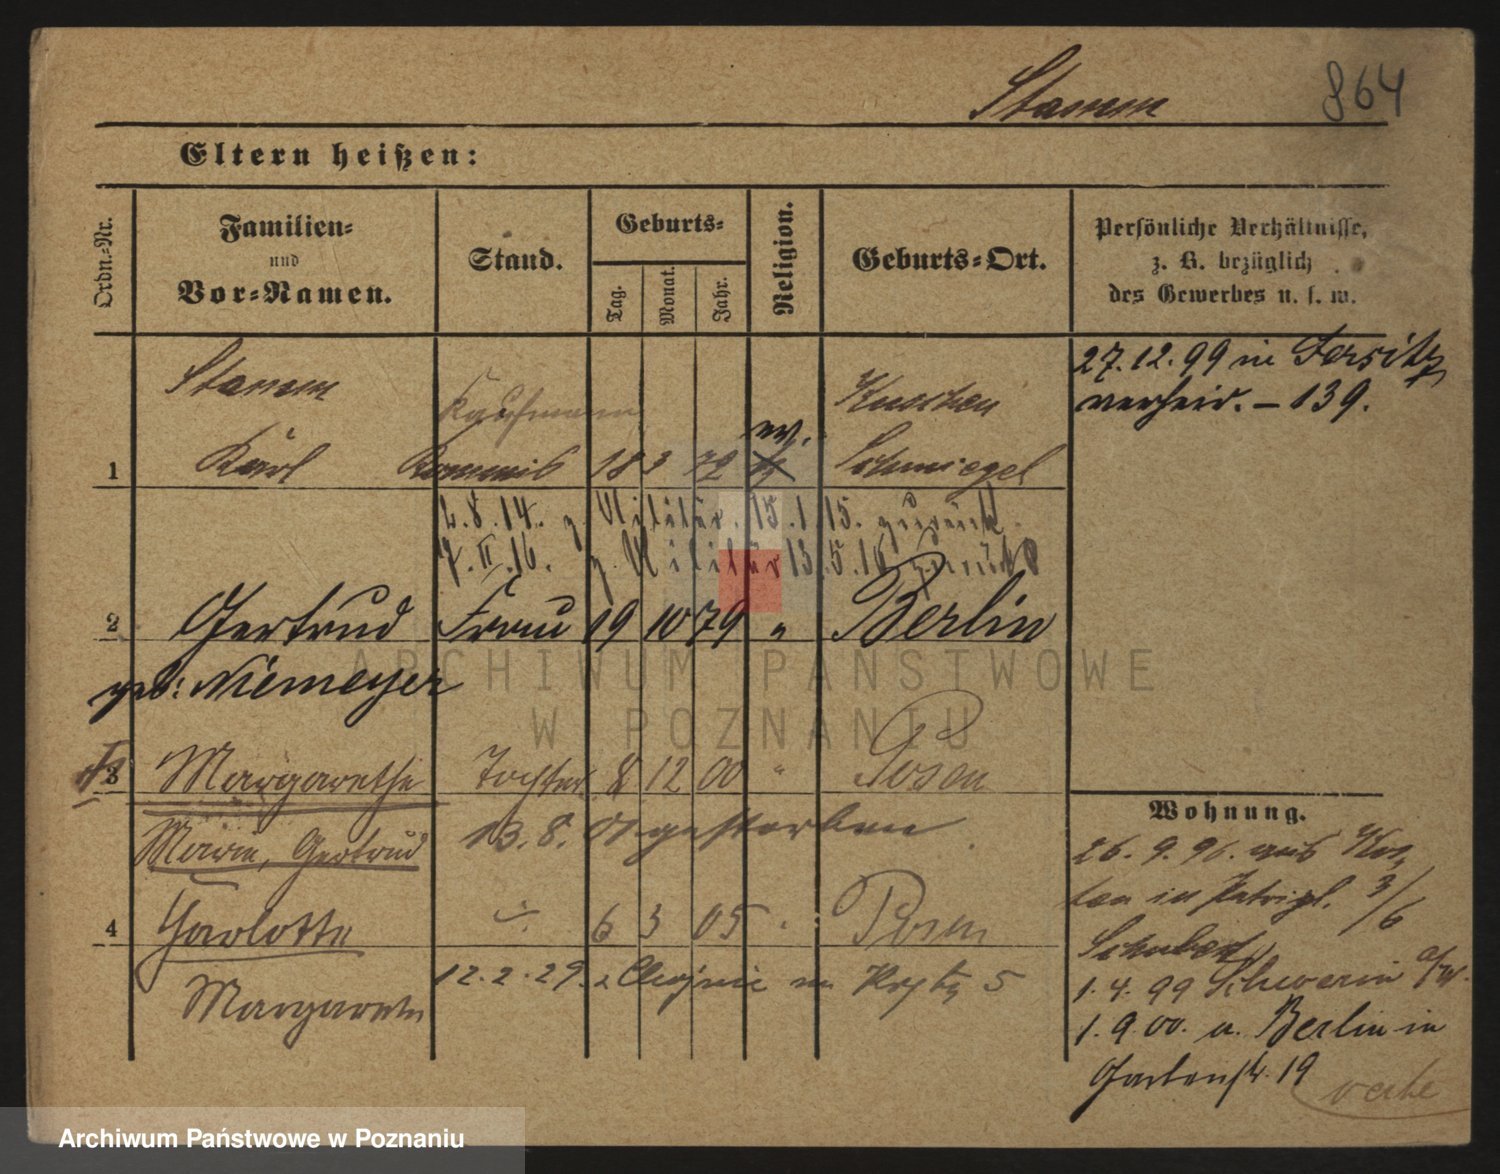 Stamm 864
Eltern heißen:
Ordn.-Nr.
Familien-
und
Vor-Namen.
Stand.
Geburts-
Tag.
Monat.
Jahr.
Religion.
Geburts-Ort.
Persönliche Verhältnisse,
z. B. bezüglich
des Gewerbes u. s. w.
Stamm
Kaufmann
27.12.99 in Jersitz
verheir. – 139.
ev.
1 Karl Kommis 18 3 72 Schmiegel
2.8.14. z. Militär. 15.1.15. zurück
7.II.16. z. Militär 13.5.16 zurück
2 Gertrud Frau 19 10 79 " Berlin
geb: Niemeyer
3 Margarethe Tochter 8 12 00 " Posen
Marie, Gertrud 13.8.01 gestorben
4 Charlotte 6 3 05 Posen
Margarete 12.2.29. 5
Wohnung.
26.9.96. aus
in 3/6
Schubert
1.4.99 Schwerin a/W.
1.9.00. a. Berlin in
Gartenstr. 19
ARCHIWUM PAŃSTWOWE
W POZNANIU
Archiwum Państwowe w Poznaniu